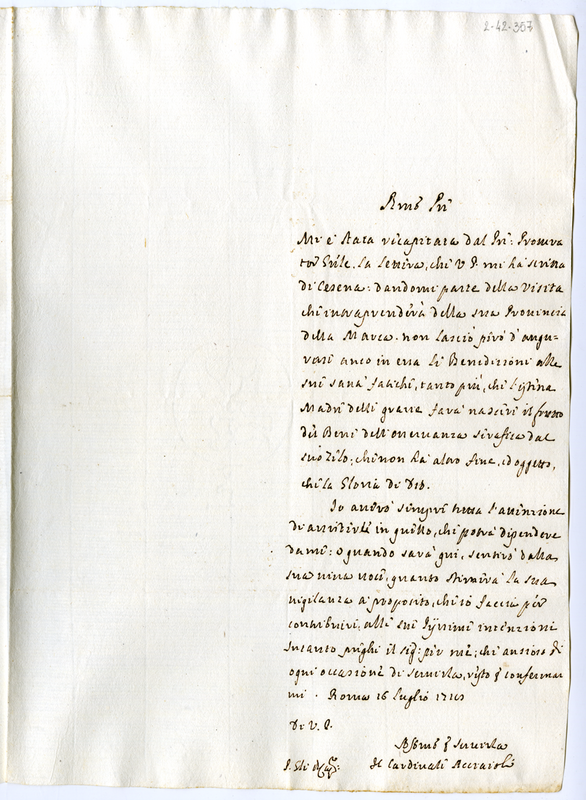 2-42-357
Rmo Pre
Mi è stata ricapitata dal Pre: Procura
tor Gnle. la lettera, che V P. mi ha scritta
di Cesena: dandomi parte della visita
che intraprenderà della sua Provincia
della Marca. non lascio però d'augu-
rarli anco in essa le Benedizioni alle
sue sante fatiche, tanto più, che l'
Madre delle grazie farà nascere il frutto
del Bene dell'osservanza serafica dal
suo zelo: che non ha altro fine, ed oggetto,
che la Gloria di Dio.
Io avrò sempre tutta l'attenzione
di assisterle in quello, che potrà dipendere
da me: e quando sarà qui, sentirò dalla
sua viva voce, quanto stimerà la sua
vigilanza a proposito, che io faccia per
contribuire, alle sue intenzioni
Intanto preghi il Sig: per me; che ansioso di
ogni occasione di servirla, resto per confermar
mi. Roma 16 Luglio
Di V. P.
per servirla
Il Cardinale Acciaioli